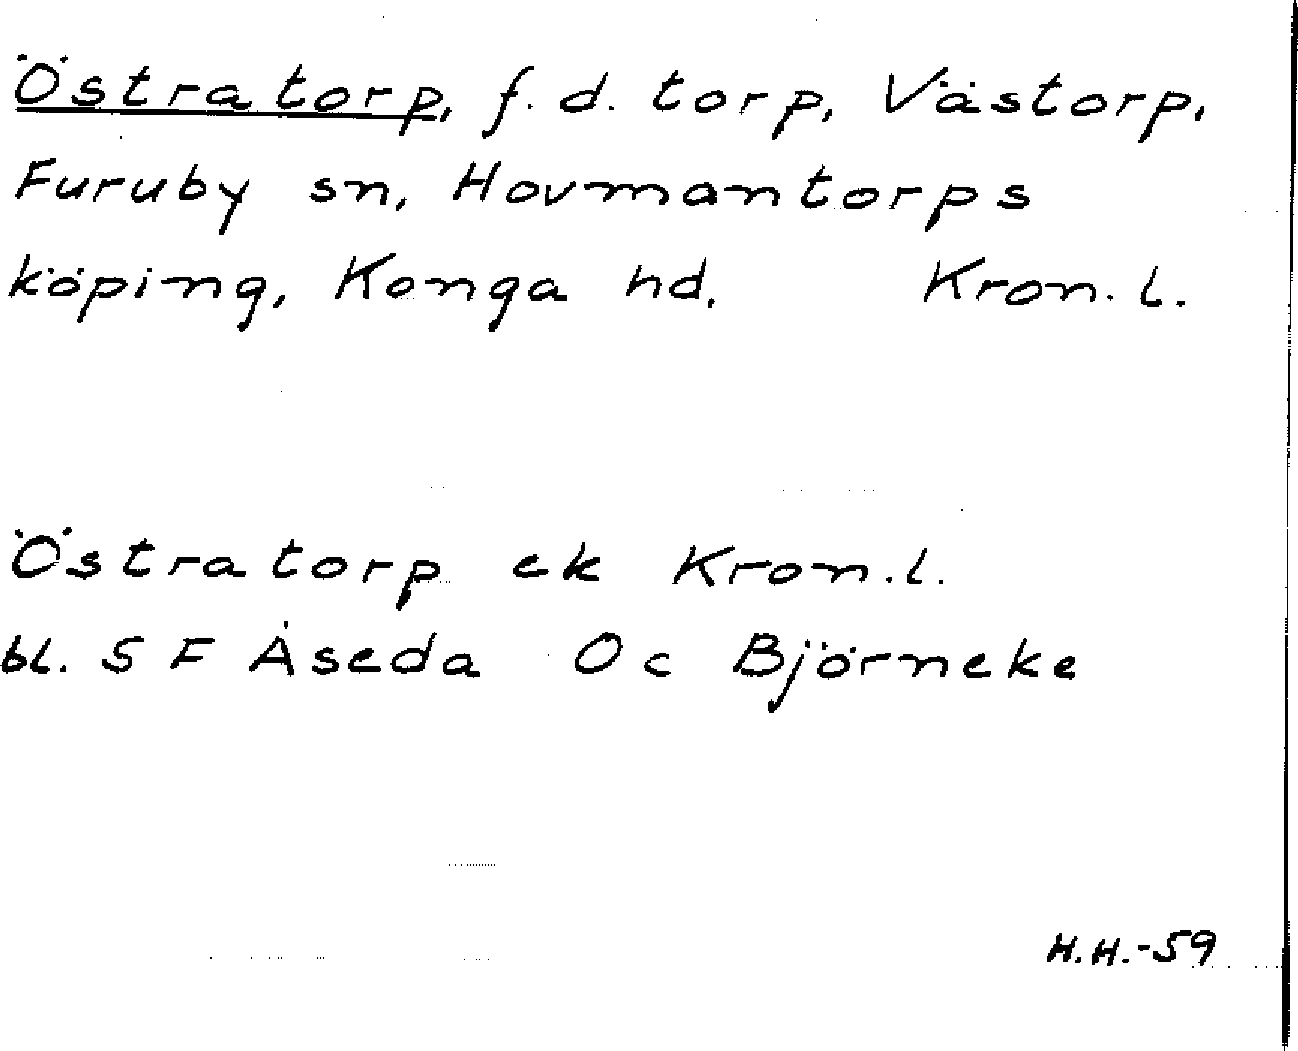 Östratorp, f.d. torp, Västorp,
Furuby sn, Hovmantorps
köping, Konga hd. Kron. l.
Östratorp ek Kron.l.
bl. 5 F Åseda 0 c Björneke
H.H.-59